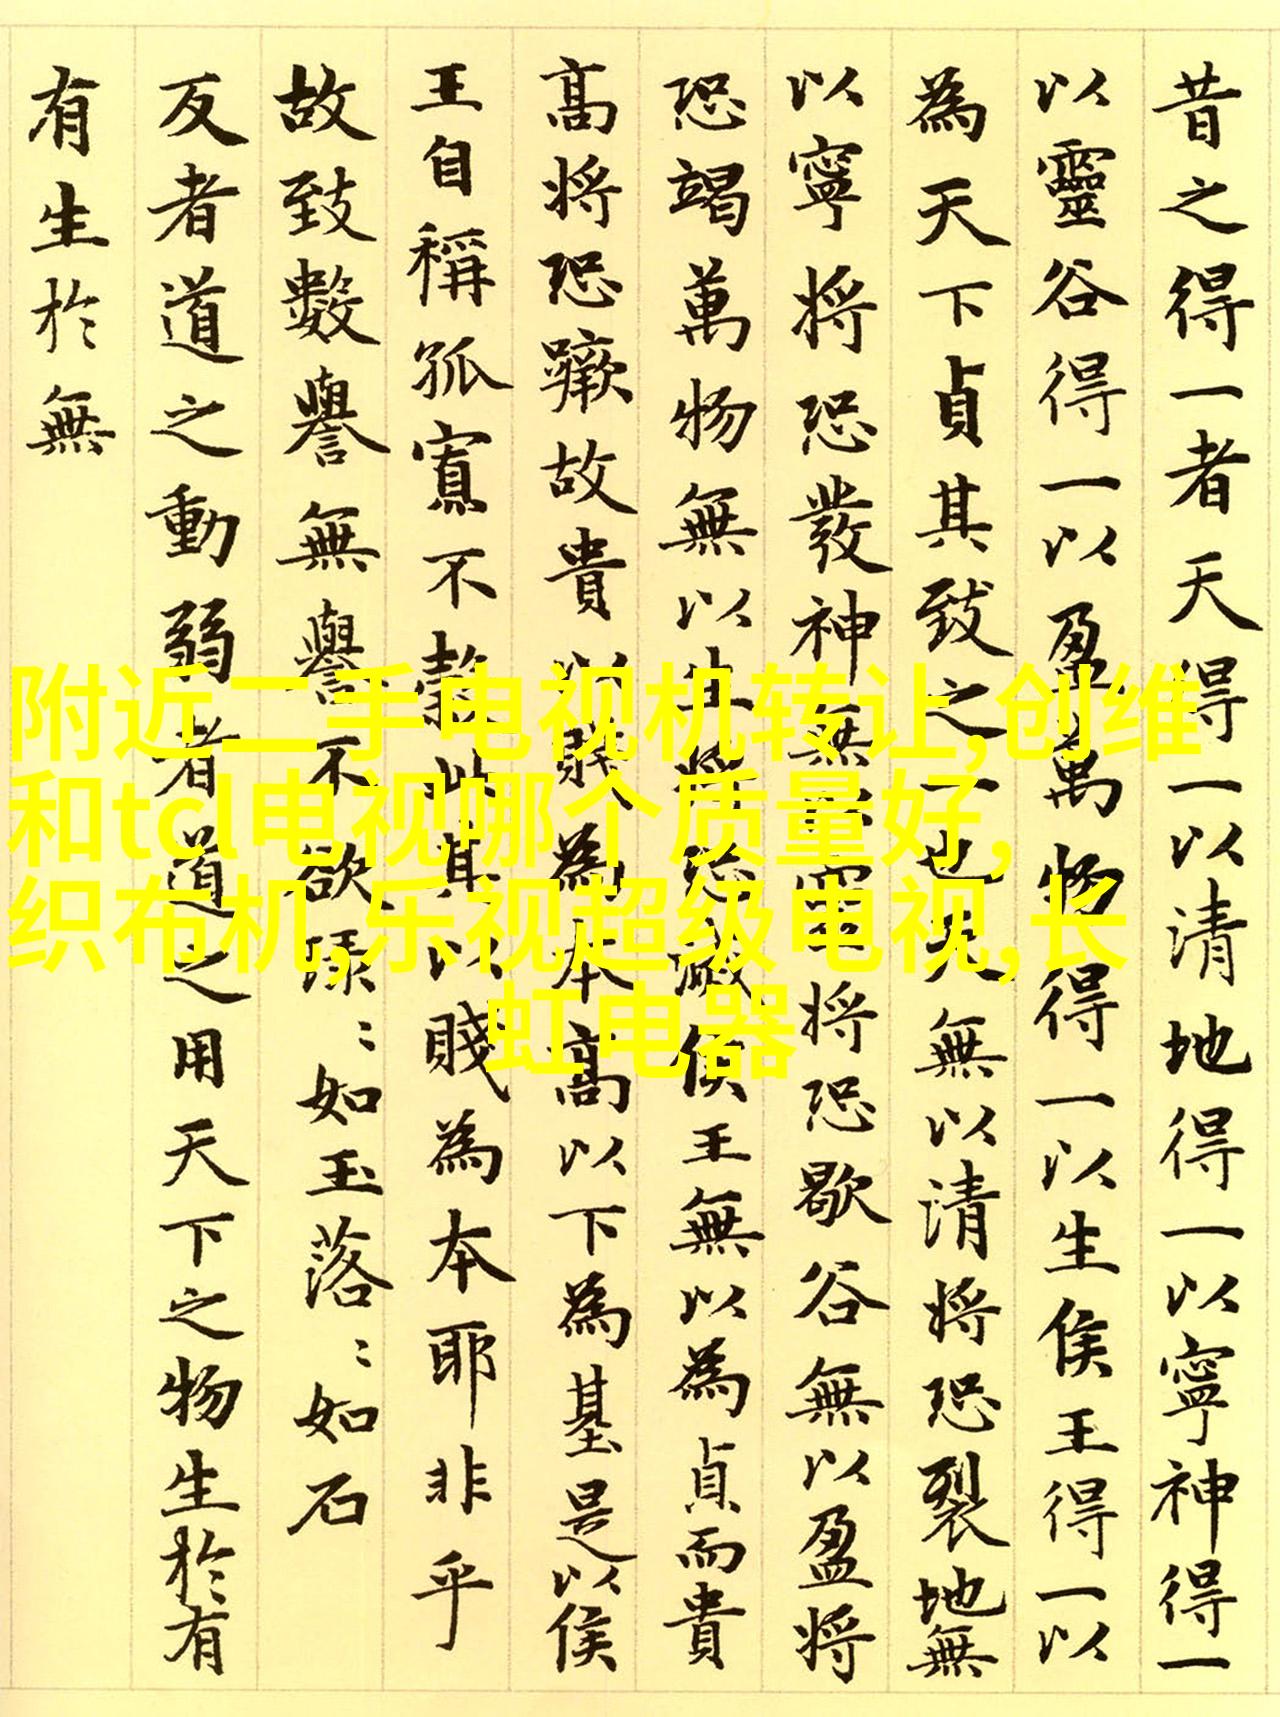 昔之得一者天得一以清地得一以寧神得一
以靈谷得一以盈萬物得一以生侯王得一以
為天下貞其致之一也天無以清將恐裂地無
以寧將恐發神無以靈將恐歇谷無以盈將
恐竭萬物無以生將恐滅侯王無以為貞而貴
高將恐蹶故貴以賤為本高以下為基是以侯
王自稱孤寡不穀此其以賤為本耶非乎
故致數譽無譽不欲琭〻如玉落〻如石
反者道之動弱者道之用天下之物生於有
有生於無
附近二手电视机转让,创维
和tcl电视哪个质量好,
织布机,乐视超级电视,长
虹电器